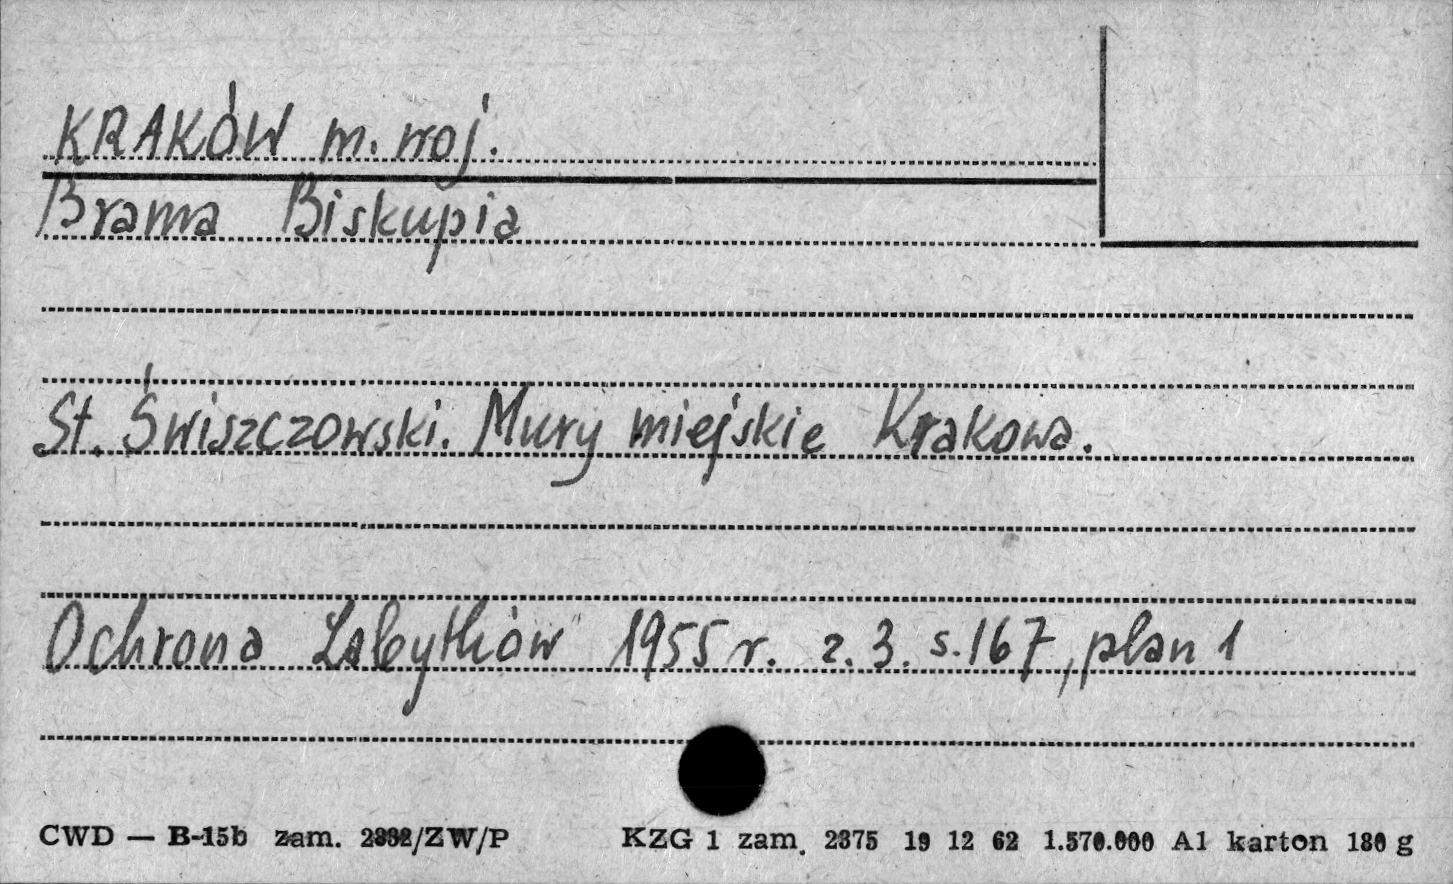 KRAKÓW m. woj.
Brama Biskupia
St. Świszczowski. Mury miejskie Krakowa.
Ochrona Zabytków 1955 r. z. 3. s. 167, plan 1
CWD — B-15b zam. /ZW/P KZG 1 zam. 2375 19 12 62 1.570.000 A1 karton 180 g